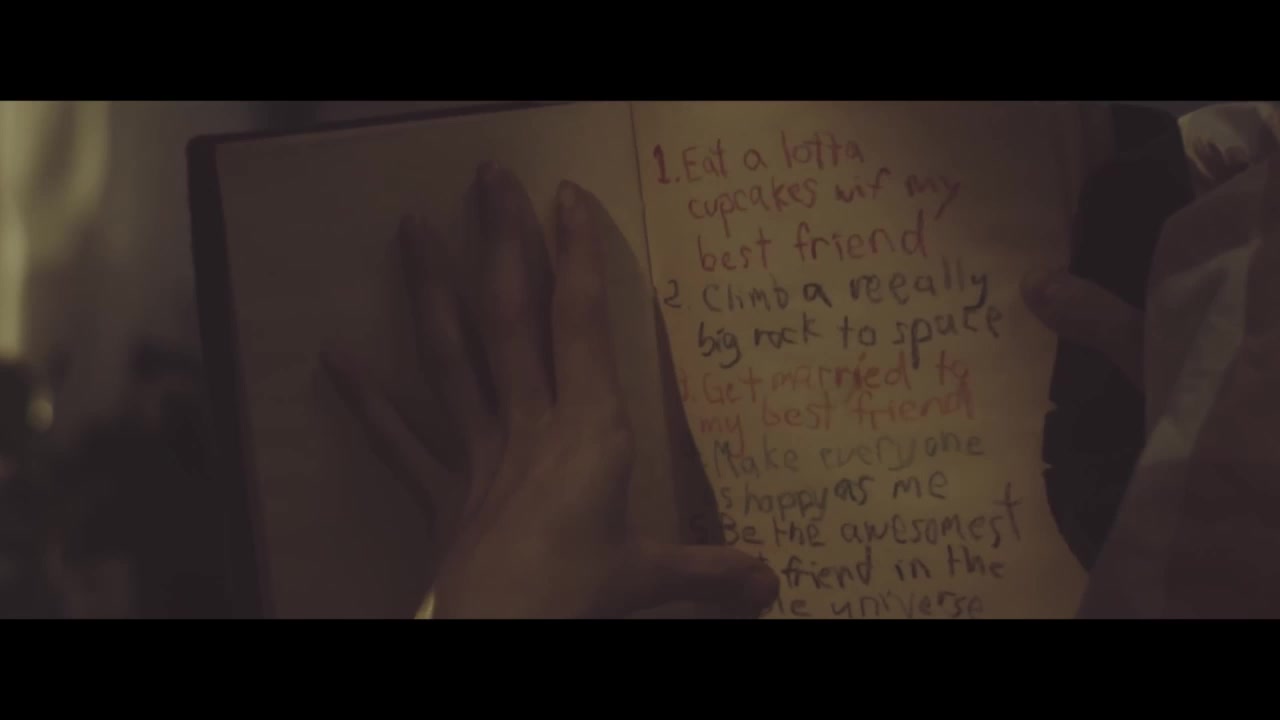 1. Eat a lotta
cupcakes wif my
best friend
2. Climb a reeally
big rock to space
Get married to
my best friend
Make everyone
s happy as me
5. Be the awesomest
friend in the
universe